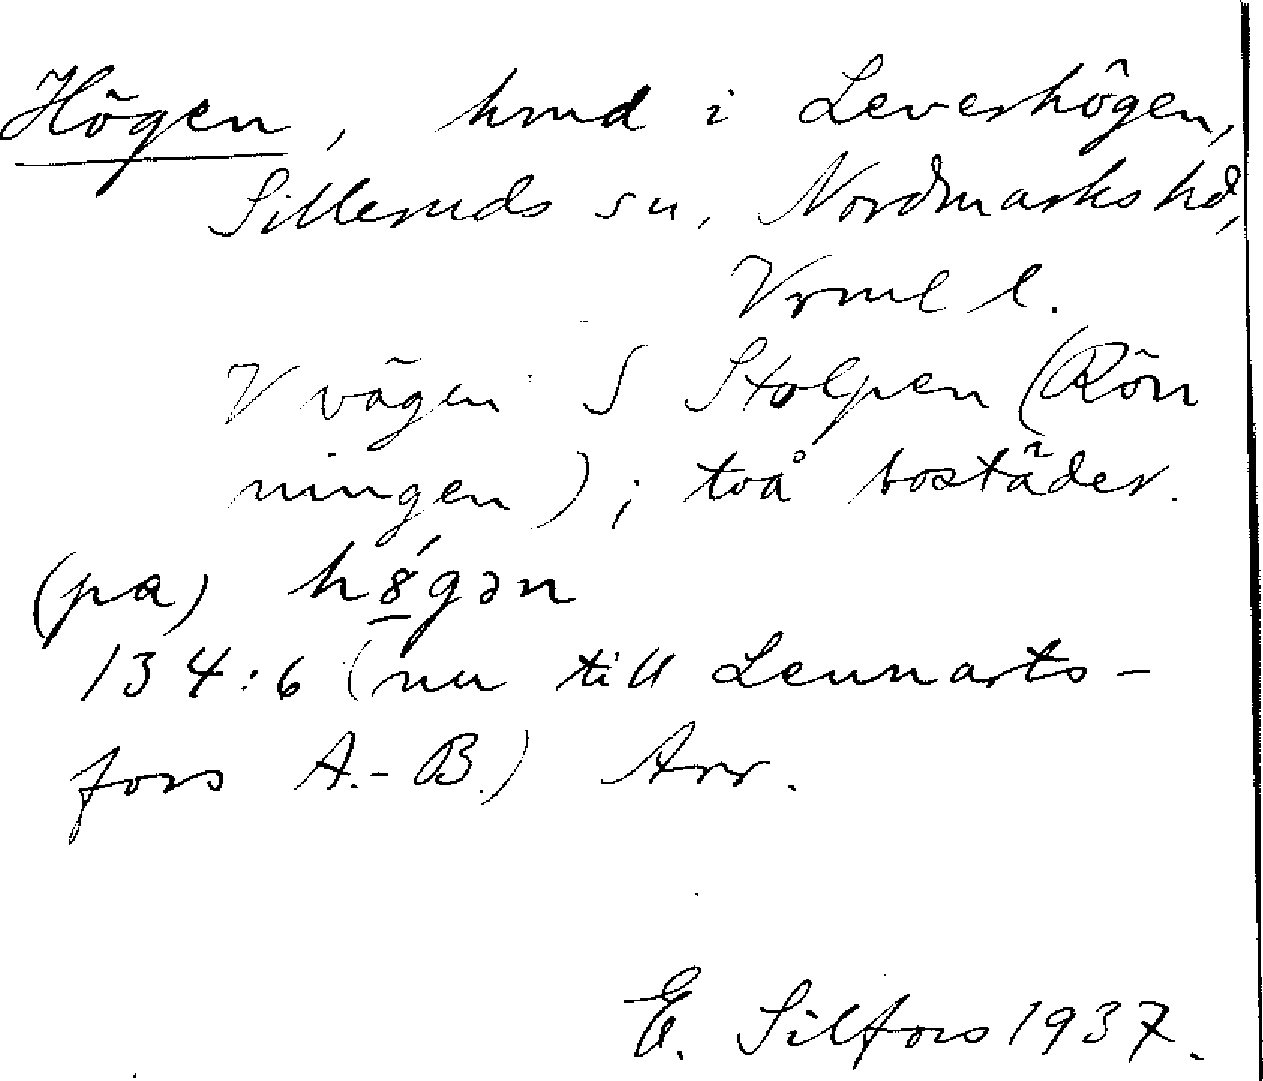 Högen, hmd i Leverhögen,
Silleruds sn, Nordmarks hd,
Vrml l.
V vägen S Stolpen (Rön
ningen); två bostäder.
(pa) hǿgən
134:6 (nu till Lennarts-
fors A.-B.) Arr.
E. Silfors 1937.